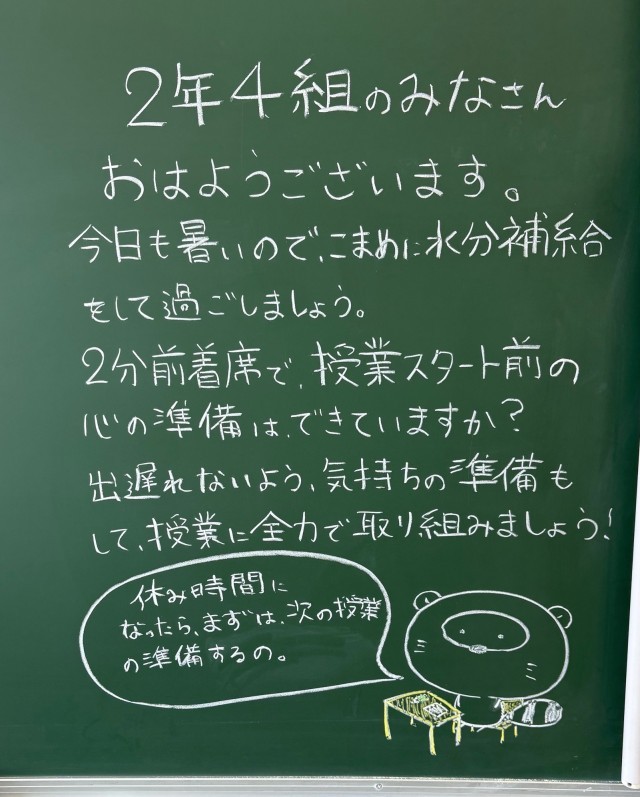 2年4組のみなさん
おはようございます。
今日も暑いので、こまめに水分補給
をして過ごしましょう。
2分前着席で、授業スタート前の
心の準備は、できていますか?
出遅れないよう、気持ちの準備も
して、授業に全力で取り組みましょう!
休み時間に
なったら、まずは、次の授業
の準備するの。